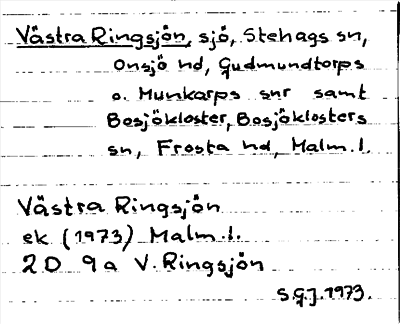 Västra Ringsjön, sjö, Stehags sn,
Onsjö hd, Gudmundtorps
o. Munkarps snr samt
Bosjökloster, Bosjöklosters
sn, Frosta hd, Malm.l.
Västra Ringsjön
ek (1973) Malm.l.
2D 9a V. Ringsjön
S.G.J. 1973.